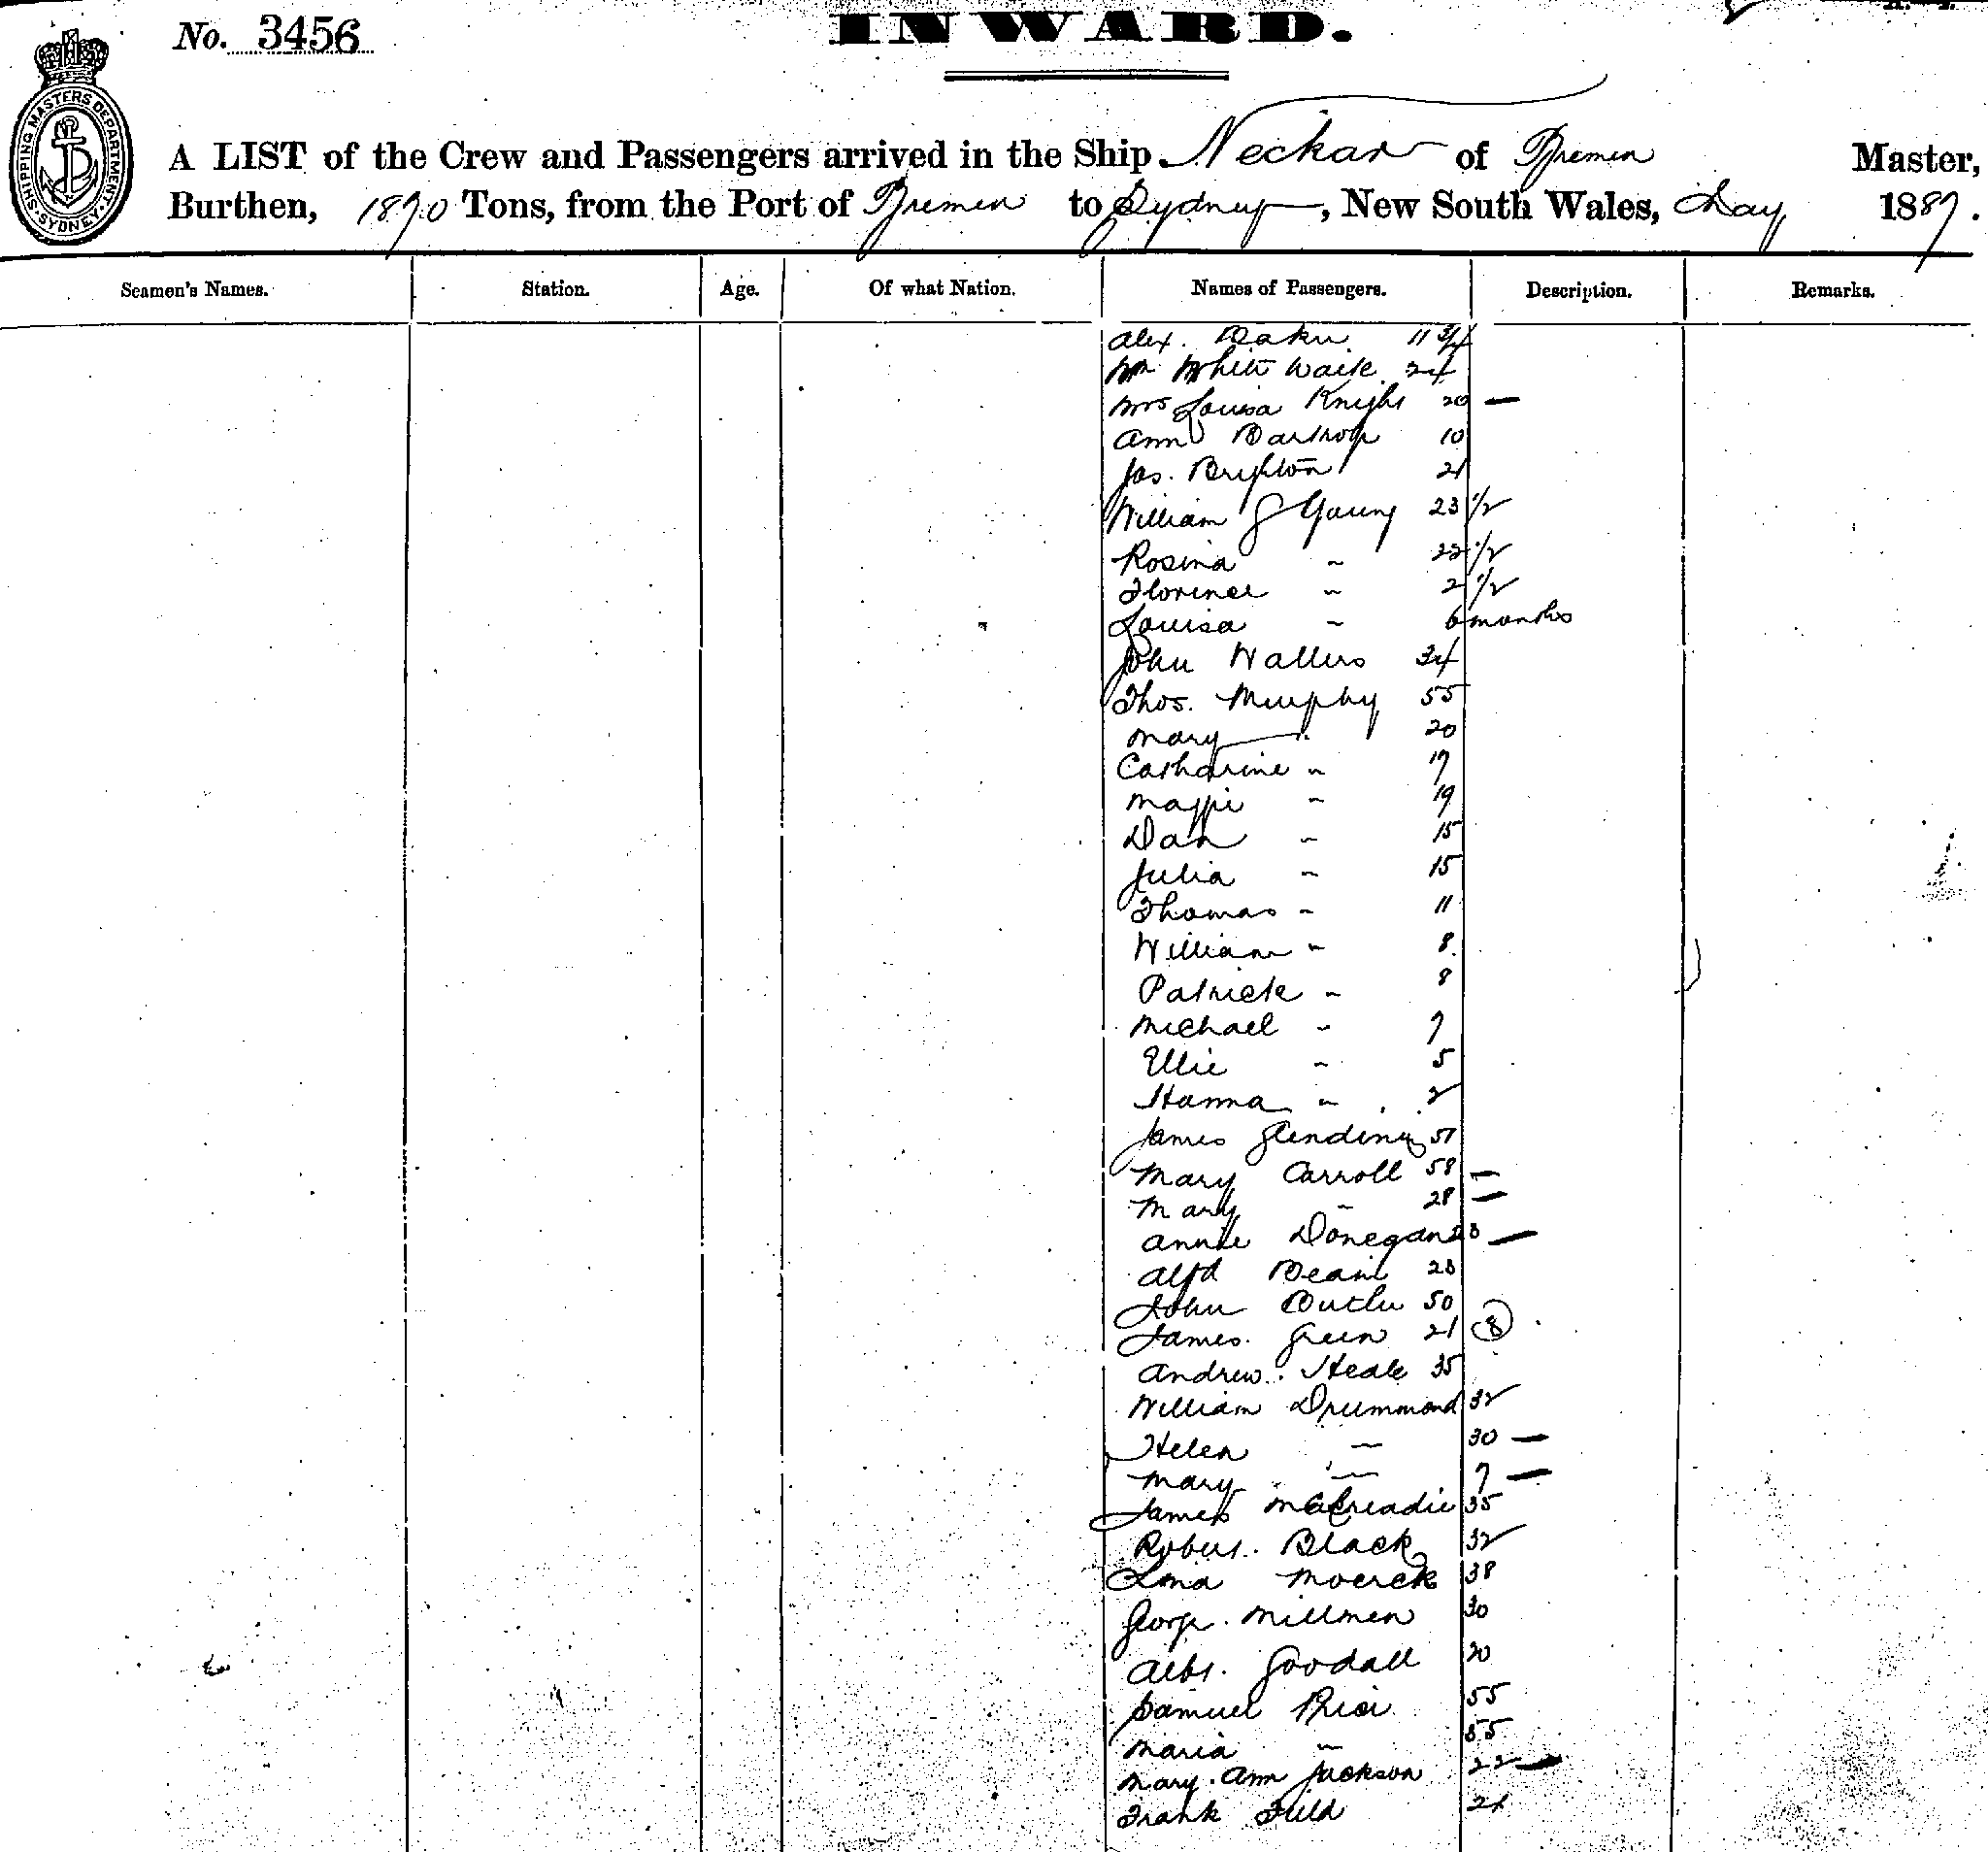 No. 3456
INWARD.
SHIPPING MASTERS DEPARTMENT SYDNEY
A LIST of the Crew and Passengers arrived in the Ship Neckar of Bremen Master,
Burthen, 1870 Tons, from the Port of Bremen to Sydney, New South Wales, Day 1887.
Seamen's Names. Station. Age. Of what Nation. Names of Passengers. Description. Remarks.
Alex. 11 3/4
Wm White Waite 24
Mrs Louisa Knight 20 —
Ann Bartrop 10
Jas. Brighton 21
William J Young 23 1/2
Rosina " 22 1/2
Florence " 2 1/2
Louisa " 6 months
John Walters 34
Thos. Murphy 55
Mary " 20
Catharine " 17
Maggie " 19
Dan " 15
Julia " 15
Thomas " 11
William " 8
Patrick " 8
Michael " 7
Ellie " 5
Hanna " 2
James Glendining 51
Mary Carroll 58 —
Mary " 28 —
Annie Donegan 23 —
Alfd Deane 28
John Butler 50
James Green 21 8
Andrew Heale 35
William Drummond 32
Helen " 30 —
Mary " 7 —
James McCreadie 35
Robert Black 32
Lina Moerck 38
George Millmen 30
Albt. Goodall 20
Samuel Price 55
Maria " 55
Mary Ann Jackson 22 —
Frank Field 21